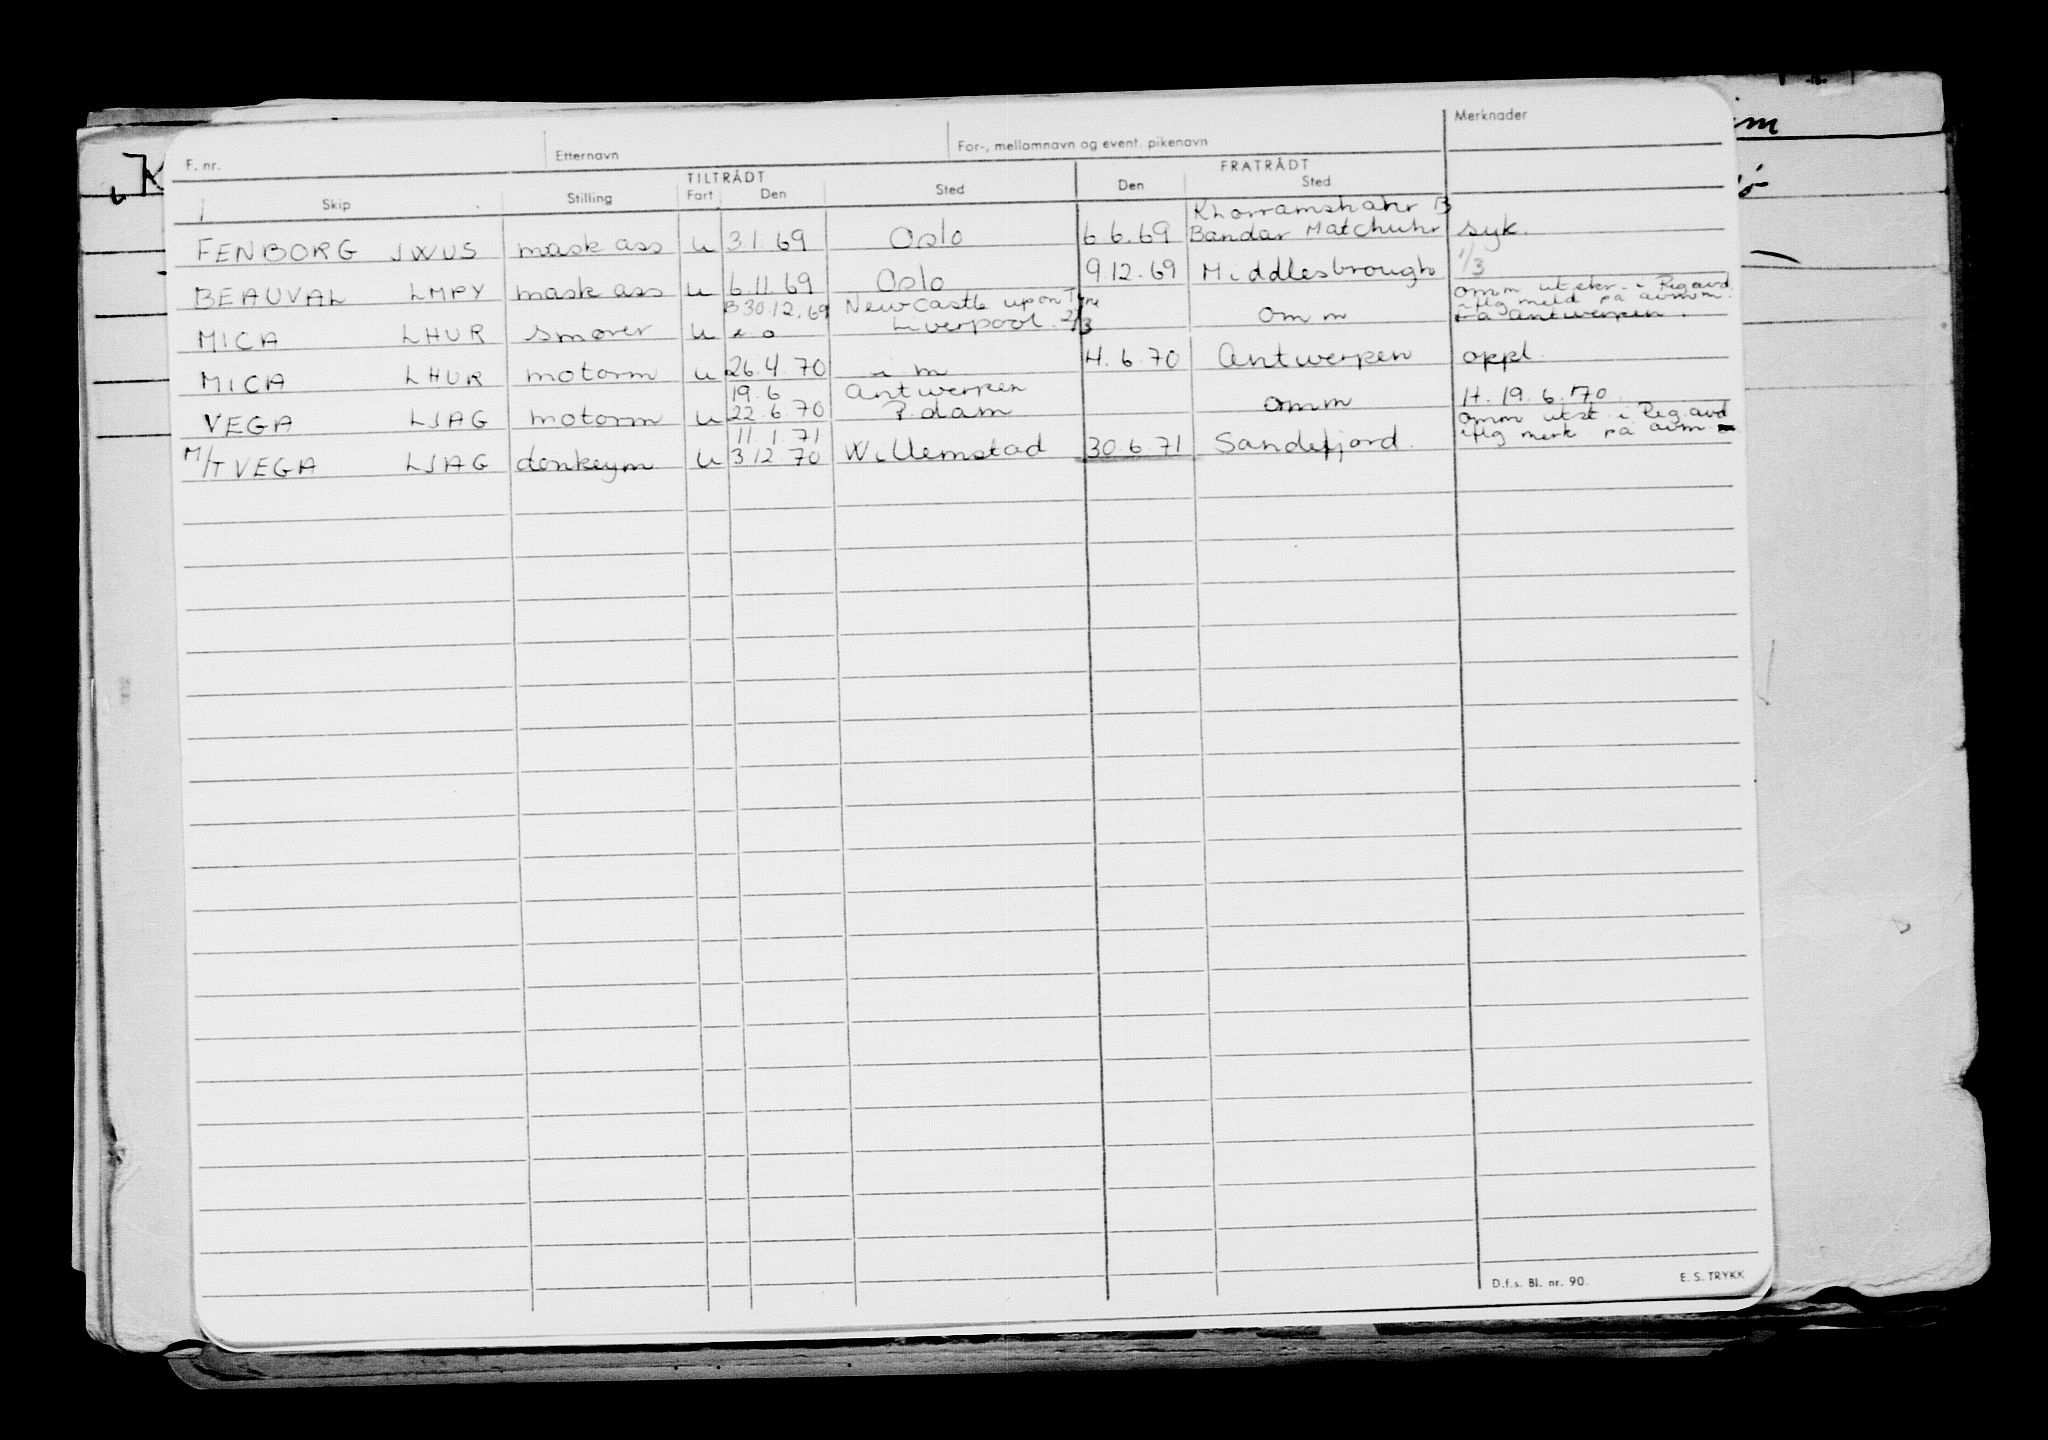 im
K
F. nr. Etternavn For-, mellomnavn og event. pikenavn Merknader
TILTRÅDT FRATRÅDT
Skip Stilling Fart Den Sted Den Sted
Khorramshahr B
FENBORG JWUS mask ass u 3.1.69 Oslo 6.6.69 Bandar Matchuhr syk.
BEAUVAL LMPY mask ass u 6.11.69 Oslo 9.12.69 Middlesbrough 1/3
B 30.12.69 Newcastle upon Tyne omm utskr. i Regavd
iflg meld på avmm.
MICA LHUR smører u Liverpool 2/3 omm fra antwerpen.
MICA LHUR motorm u 26.4.70 i m 4.6.70 Antwerpen oppl.
19.6 Antwerpen H. 19.6.70
VEGA LJAG motorm u 22.6.70 R.dam omm omm utst i Reg.avd
11.1.71 iflg merk på avm.
M/T VEGA LJAG donkeym u 3.12 70 Willemstad 30.6.71 Sandefjord.
D.f.s. Bl. nr. 90. E. S. TRYKK